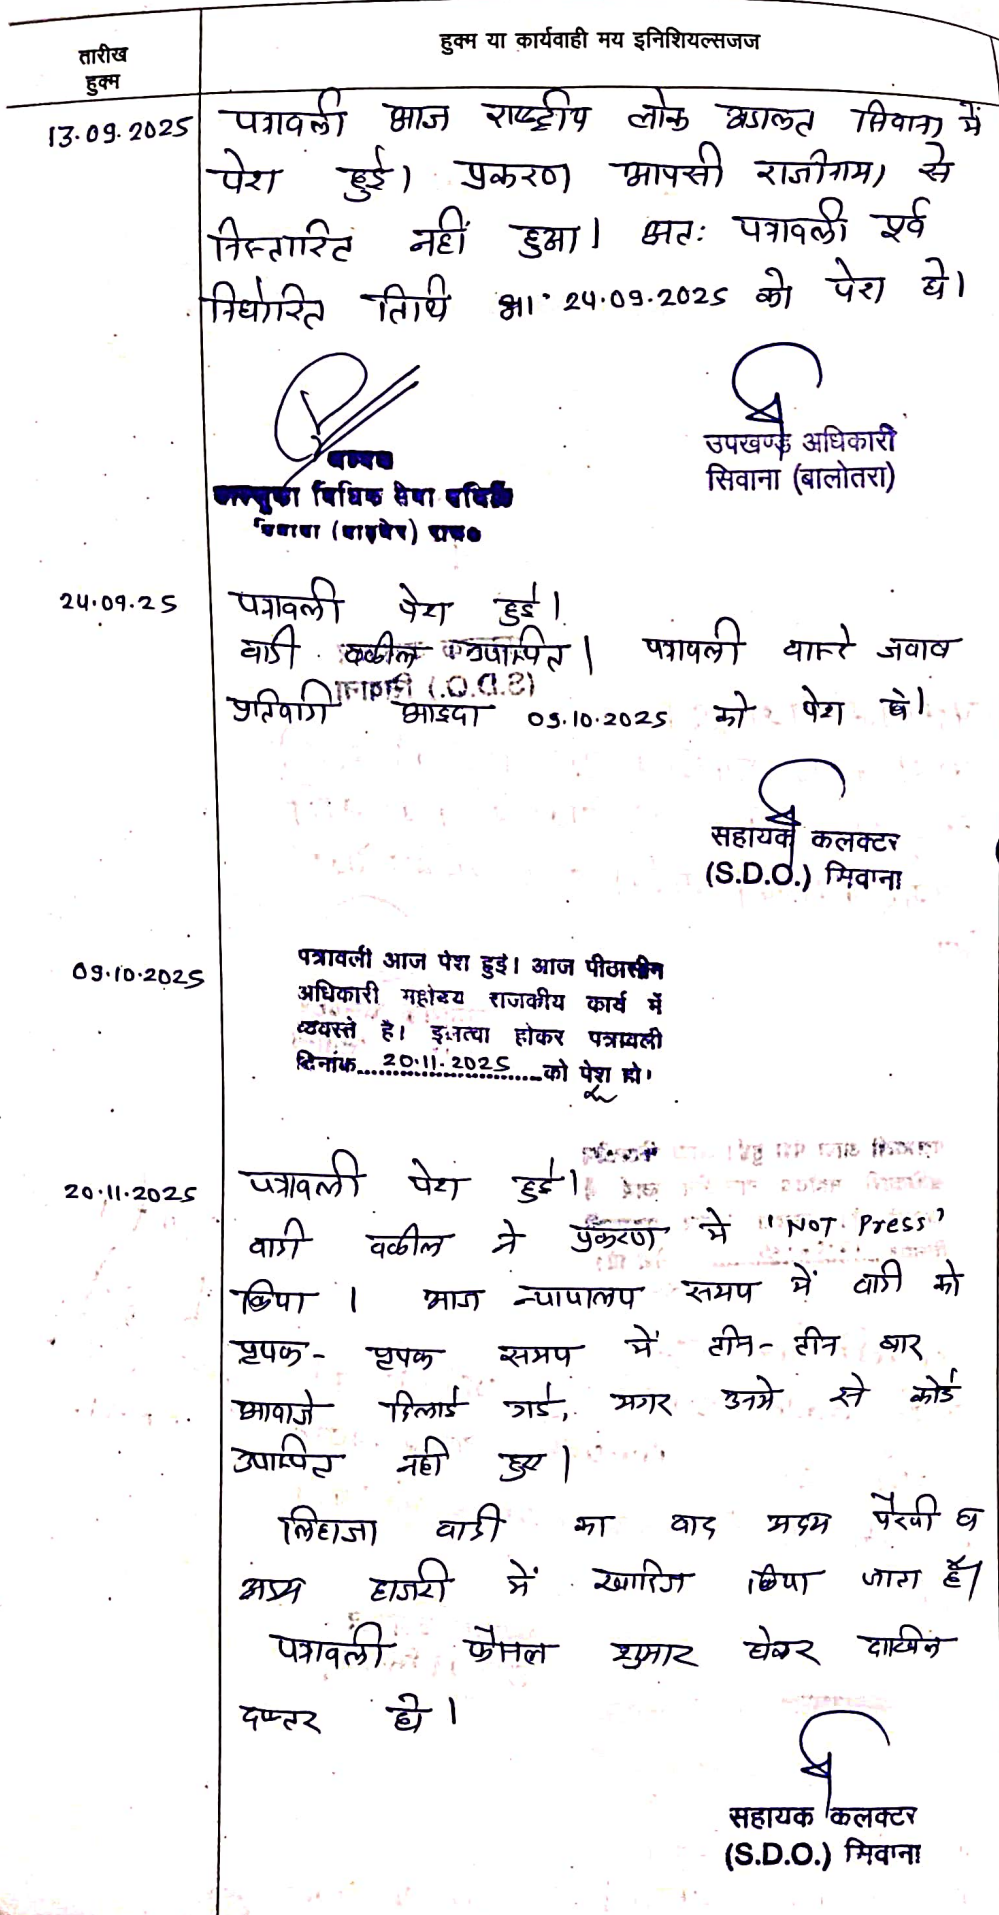 तारीख
हुक्म
हुक्म या कार्यवाही मय इनिशियल्सजज
13.09.2025 पत्रावली आज राष्ट्रीय लोक अदालत सिवाना में
पेश हुई। प्रकरण आपसी राजीनामा से
निस्तारित नहीं हुआ। अतः पत्रावली पूर्व
निर्धारित तिथि 24.09.2025 को पेश हो।
उपखण्ड अधिकारी
सिवाना (बालोतरा)
विधिक सेवा समिति
24.09.25 पत्रावली पेश हुई।
वादी वकील उपस्थित। पत्रावली वास्ते जवाब
प्रतिवादी आइंदा 09.10.2025 को पेश हो।
सहायक कलक्टर
(S.D.O.) सिवाना
09.10.2025 पत्रावली आज पेश हुई। आज पीठासीन
अधिकारी महोदय राजकीय कार्य में
व्यस्त है। इत्तला होकर पत्रावली
दिनांक 20.11.2025 को पेश हो।
20.11.2025 पत्रावली पेश हुई।
वादी वकील ने प्रकरण में 'NOT Press'
किया। आज न्यायालय समय में वादी को
पृथक- पृथक समय में तीन- तीन बार
आवाजे दिलाई गई, मगर उनमे से कोई
उपस्थित नही हुए।
लिहाजा वादी का वाद अदम पैरवी व
अदम हाजरी में खारिज किया जाता है।
पत्रावली फैसल शुमार होकर दाखिल
दफ्तर हो।
सहायक कलक्टर
(S.D.O.) सिवाना